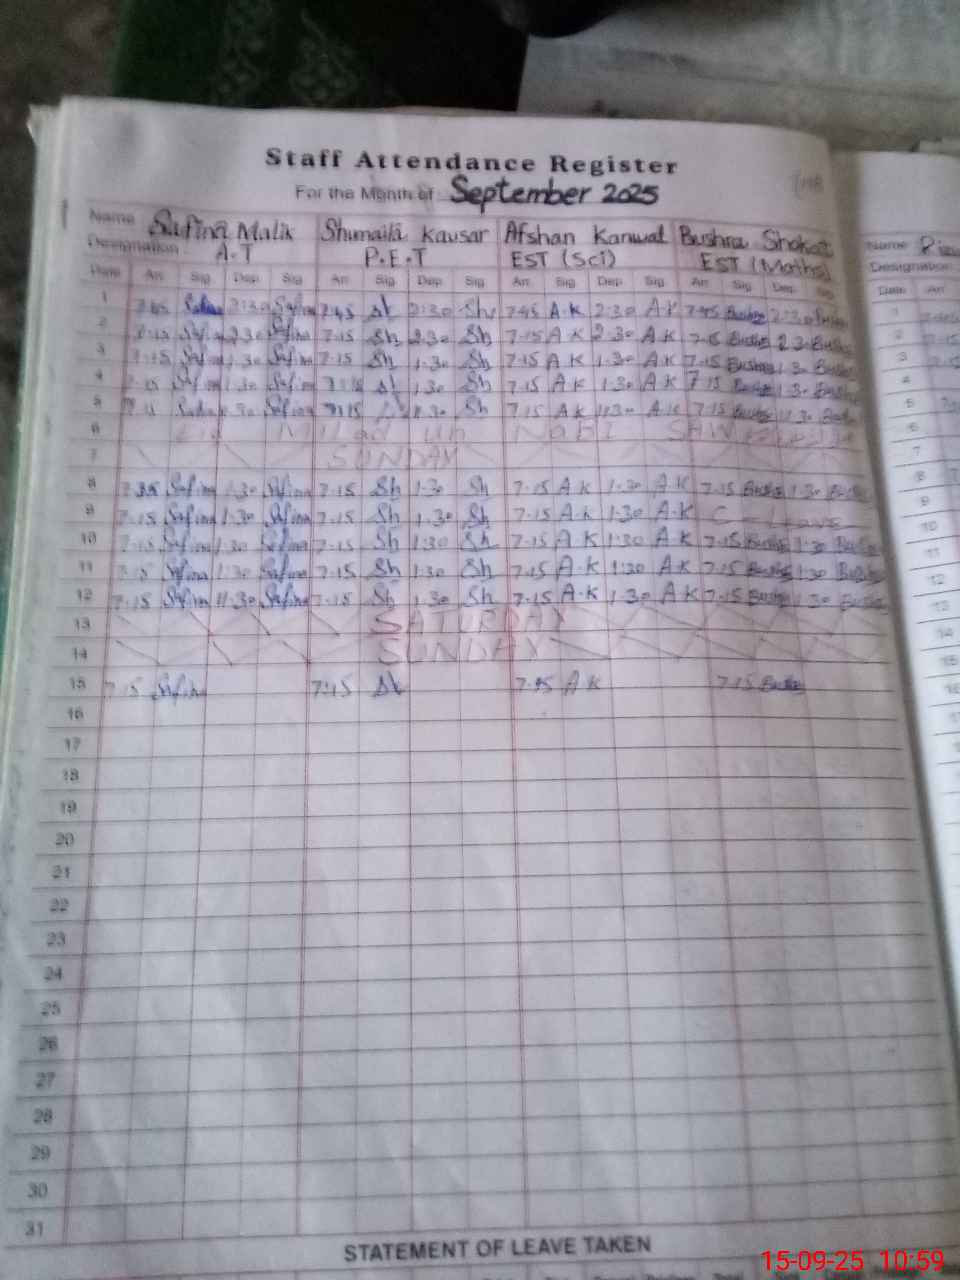 Staff Attendance Register
For the Month of September 2025
Name Safina Malik Shumaila Kausar Afshan Kanwal Bushra Shokat
Designation A.T P.E.T EST (Sci) EST (Maths)
Date Arr Sig Dep Sig Arr Sig Dep Sig Arr Sig Dep Sig Arr Sig Dep Sig
1 7:45 2:30 Safina 7:45 Sh 2:30 Sh 7:45 A.K 2:30 A.K 7:45 Bushra 2:30
2 7:15 Safina 2:30 Safina 7:15 Sh 2:30 Sh 7:15 A K 2:30 A K 7:15 Bushra 2:30 Bushra
3 7:15 Safina 1:30 Safina 7:15 Sh 1:30 Sh 7:15 A K 1:30 A K 7:15 Bushra 1:30 Bushra
4 7:15 Safina 1:30 Safina 7:15 Sh 1:30 Sh 7:15 A K 1:30 A K 7:15 Bushra 1:30 Bushra
5 7:15 1:30 Safina 7:15 1:30 Sh 7:15 A K 1:30 A.K 7:15 Bushra 1:30 Bushra
6 Eid Milad un Nabi
7 SUNDAY
8 Safina 1:30 Safina 7:15 Sh 1:30 Sh 7:15 A.K 1:30 A.K 7:15 Bushra 1:30 Bushra
9 7:15 Safina 1:30 Safina 7:15 Sh 1:30 Sh 7:15 A.K 1:30 A.K C - Leave
10 7:15 Safina 1:30 Safina 7:15 Sh 1:30 Sh 7:15 A.K 1:30 A.K 7:15 Bushra 1:30 Bushra
11 7:15 Safina 1:30 Safina 7:15 Sh 1:30 Sh 7:15 A.K 1:30 A K 7:15 Bushra 1:30 Bushra
12 7:15 Safina 1:30 Safina 7:15 Sh 1:30 Sh 7:15 A.K 1:30 A K 7:15 Bushra 1:30 Bushra
13 SATURDAY
14 SUNDAY
15 7:15 Safina 7:15 Sh A K 7:15 Bushra
16
17
18
19
20
21
22
23
24
25
26
27
28
29
30
31
STATEMENT OF LEAVE TAKEN
Name
Designation
Date Arr
1
2
3
4
5
6
7
8
9
10
11
12
13
14
15
16
17
15-09-25 10:59